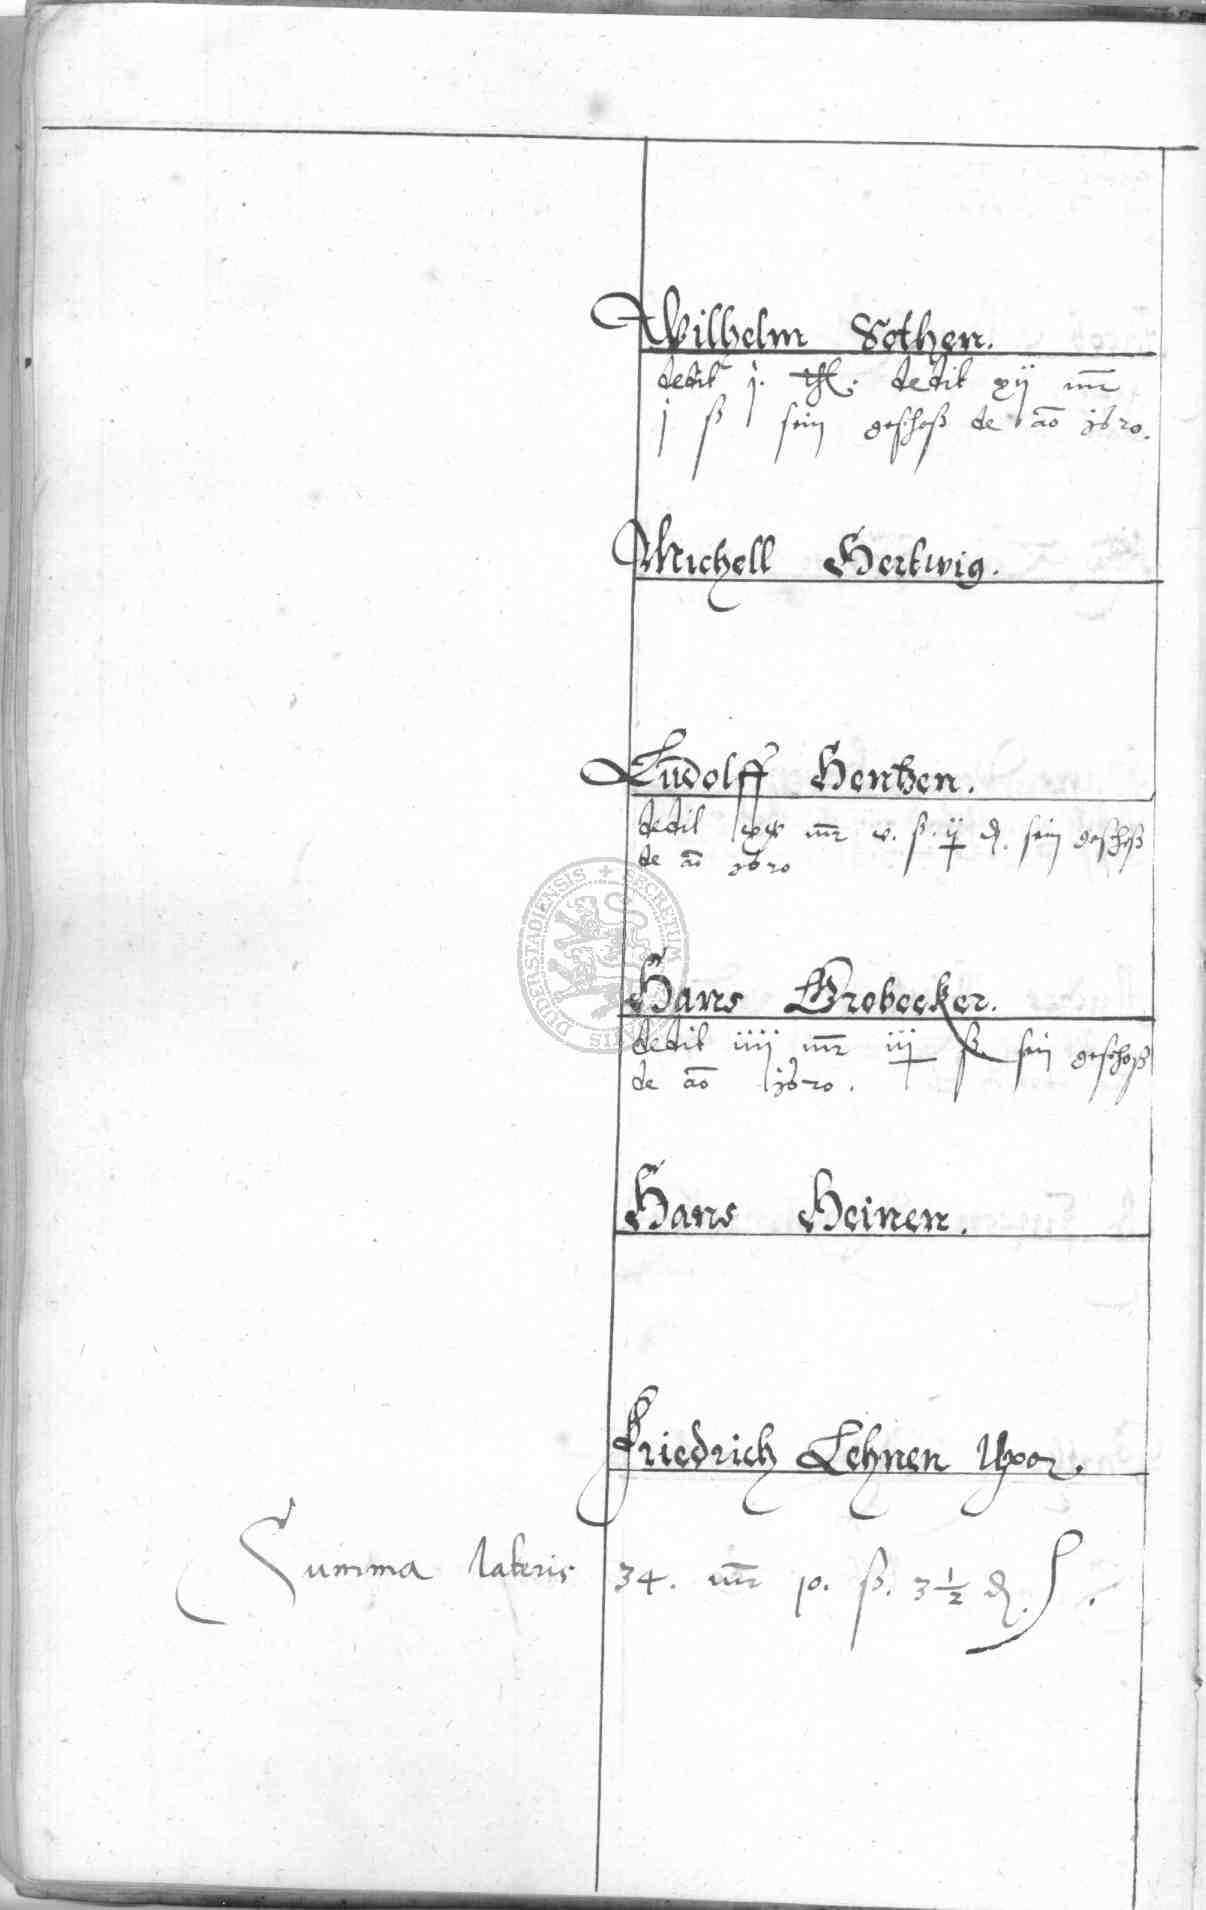 Wilhelm Söthen.
dedit j. thl. dedit xij mr
j ß sein geschoß de ao 1620.
Michell Hertwig.
Ludolff Hentzen.
dedit mr v. ß. ij d. sein geschoß
de ao 1620
Hans Grobecker.
dedit iiij mr iij ß sein geschoß
de ao 1620.
Hans Heinen.
Friedrich Lehnen Uxor.
Summa lateris 34. mr 10. ß. 3 1/2 d.
DUDERSTADIENSIS + SECRETUM